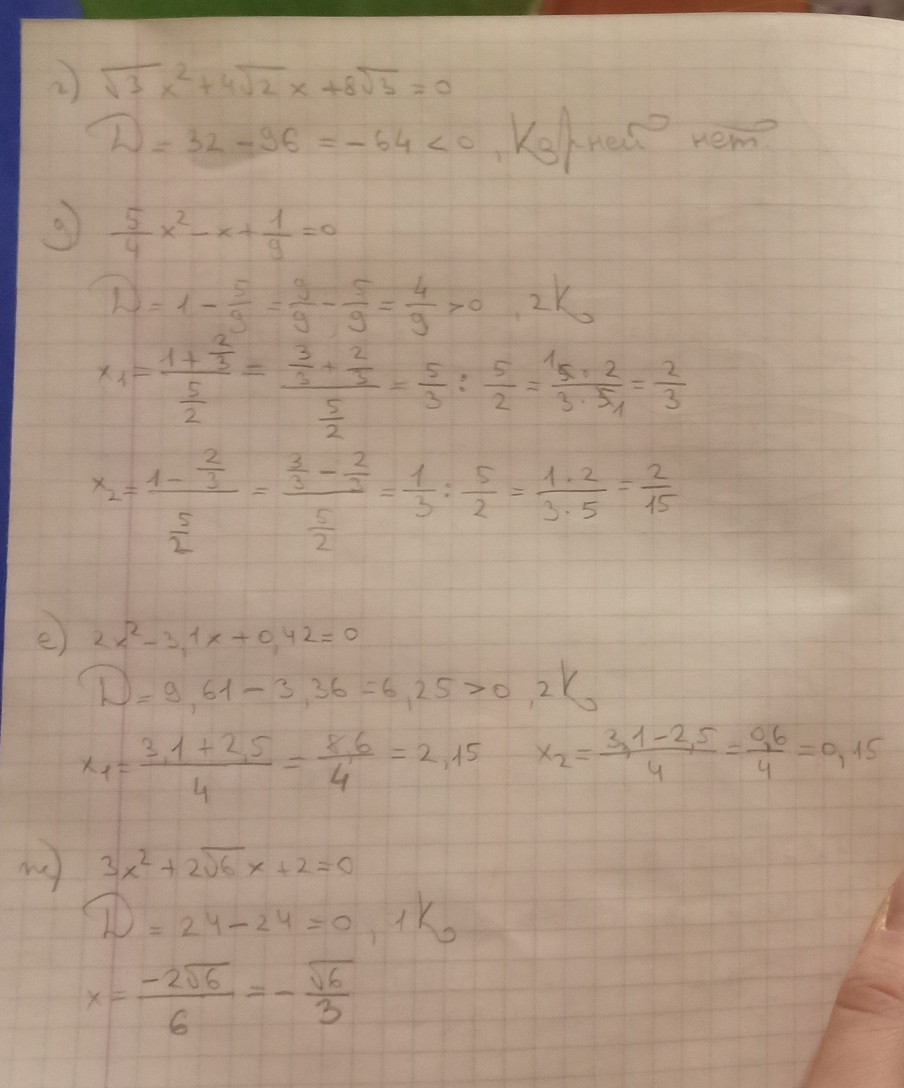 г) √3 x² + 4√2 x + 8√3 = 0
D = 32 - 96 = -64 < 0, Корней нет
д) 5/4 x² - x + 1/9 = 0
D = 1 - 5/9 = 9/9 - 5/9 = 4/9 > 0, 2К
x₁ = (1 + 2/3)/(5/2) = (3/3 + 2/3)/(5/2) = 5/3 : 5/2 = (5 · 2)/(3 · 5) = 2/3
x₂ = (1 - 2/3)/(5/2) = (3/3 - 2/3)/(5/2) = 1/3 : 5/2 = (1 · 2)/(3 · 5) = 2/15
е) 2x² - 3,1x + 0,42 = 0
D = 9,61 - 3,36 = 6,25 > 0, 2К
x₁ = (3,1 + 2,5)/4 = 8,6/4 = 2,15 x₂ = (3,1 - 2,5)/4 = 0,6/4 = 0,15
ж) 3x² + 2√6 x + 2 = 0
D = 24 - 24 = 0, 1К
x = (-2√6)/6 = -√6/3